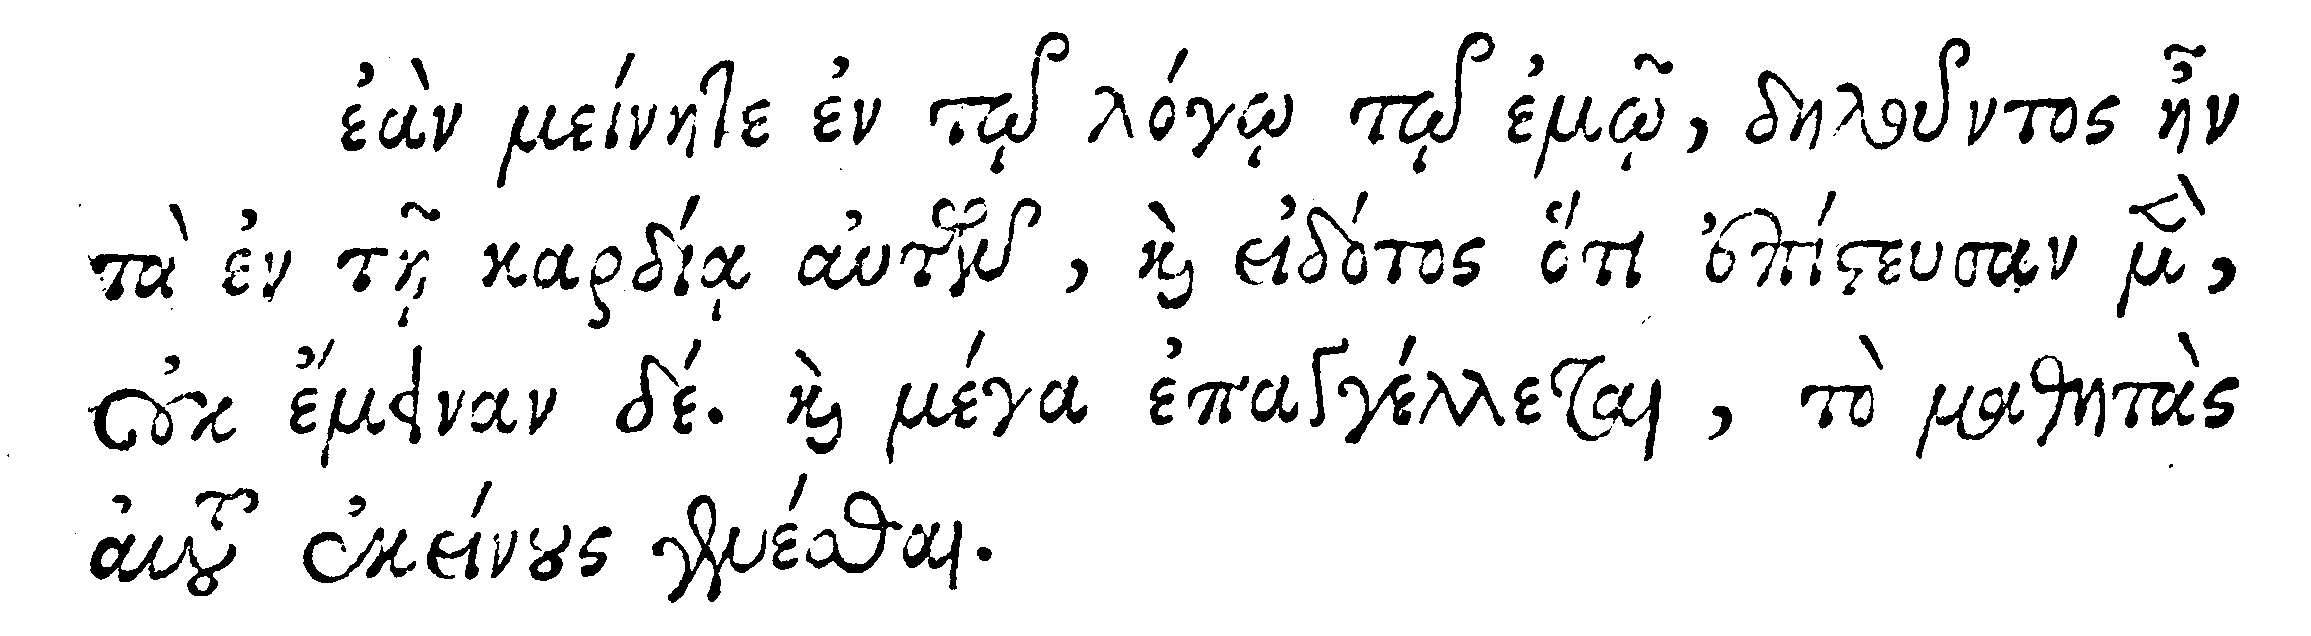 ἐὰν μείνητε ἐν τῷ λόγῳ τῷ ἐμῷ, δηλοῦντος ἦν
τὰ ἐν τῇ καρδίᾳ αὐτῶν, καὶ εἰδότος ὅτι ἐπίστευσαν μὲν,
οὐκ ἔμειναν δέ. καὶ μέγα ἐπαγγέλλεται, τὸ μαθητὰς
αὐτοῦ ἐκείνους γενέσθαι.